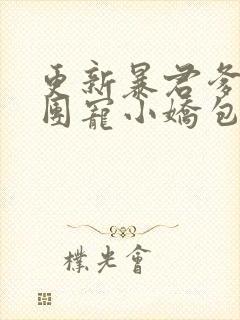 更新暴君爹
团宠小嬌包
樸光會